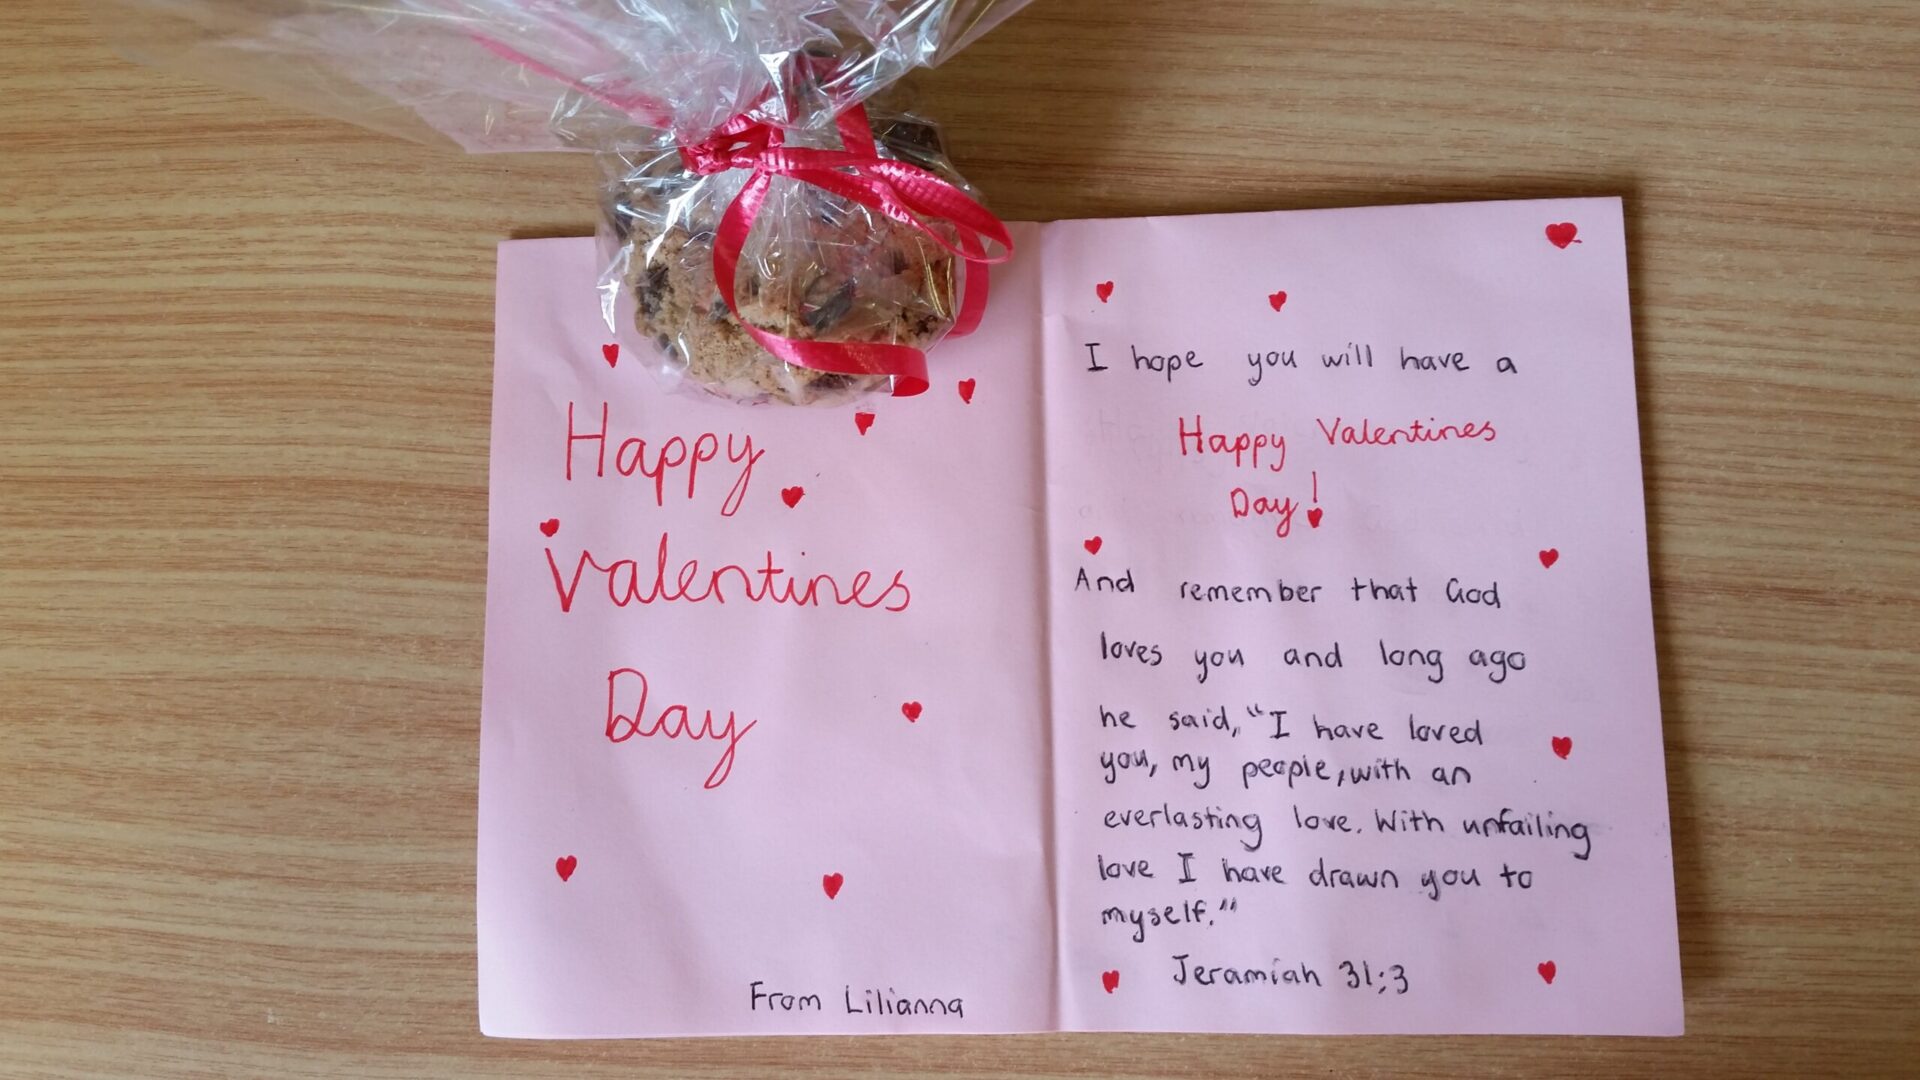 Happy
Valentines
Day
From Lilianna
I hope you will have a
Happy Valentines
Day!
And remember that God
loves you and long ago
he said, "I have loved
you, my people, with an
everlasting love. With unfailing
love I have drawn you to
myself."
Jeramiah 31:3